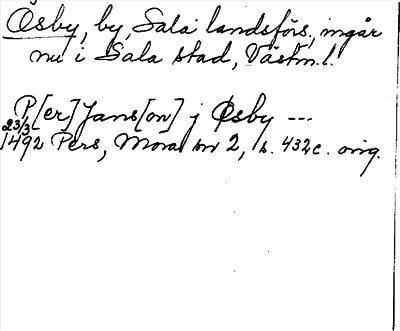 Ösby, by, Sala landsförs., ingår
nu i Sala stad, Västm.l.
P[er] Jans[on] j Øsby ---
23/3
1492 Pers, Mora nr 2, s. 432c. orig.